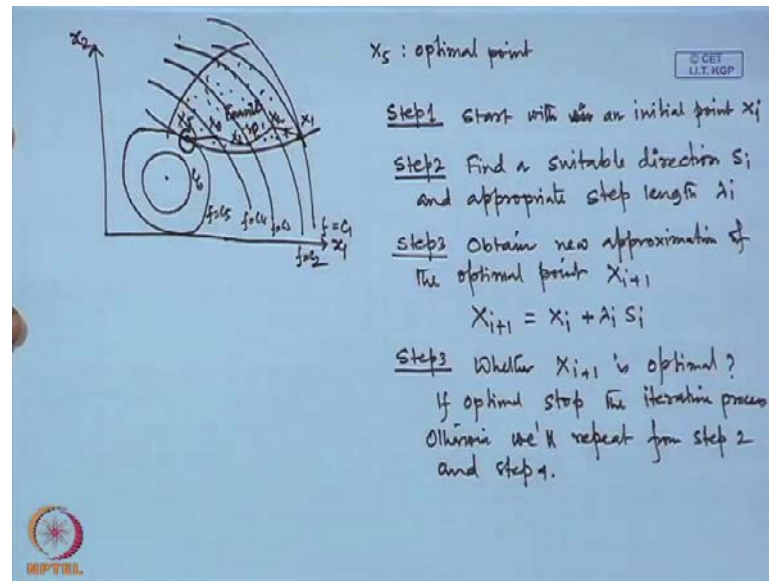 x₂
x₅ : optimal point
© CET
I.I.T. KGP
Step1 Start with an initial point xᵢ
Step2 Find a suitable direction Sᵢ
and appropriate step length λᵢ
Step3 Obtain new approximation of
the optimal point Xᵢ₊₁
Xᵢ₊₁ = Xᵢ + λᵢ Sᵢ
Step3 Whether Xᵢ₊₁ is optimal?
If optimal stop the iteration process
Otherwise we'll repeat from step 2
and step 4.
x₅
x₂
x₁
f=C₅
f=C₄
f=C₃
f=C₁
x₁
f=C₂
NPTEL